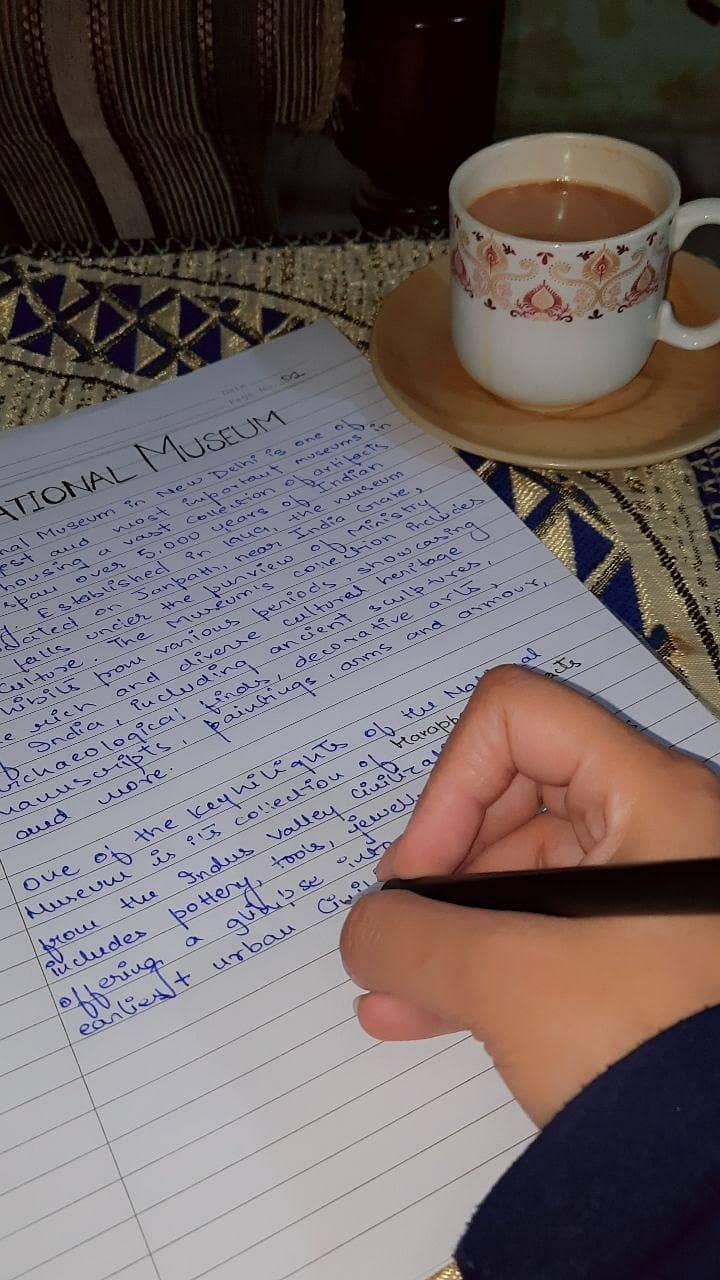 Date
Page No. 02
ATIONAL MUSEUM
nal Museum in New Delhi is one of
est and most important museums in
housing a vast collection of artifacts
span over 5,000 years of Indian
Established in 1949, the museum
located on Janpath, near India Gate,
falls under the purview of Ministry
Culture. The Museum's collection includes
hibits from various periods, showcasing
e rich and diverse cultural heritage
of India, including ancient sculptures,
archaeological finds, decorative arts,
manuscripts, paintings, arms and armour,
and more.
One of the keyhilights of the National
Museum is its collection of Harapp
from the Indus Valley civiliza
includes pottery, tools, jewell
offering a glimbse into
earliest urban Civili